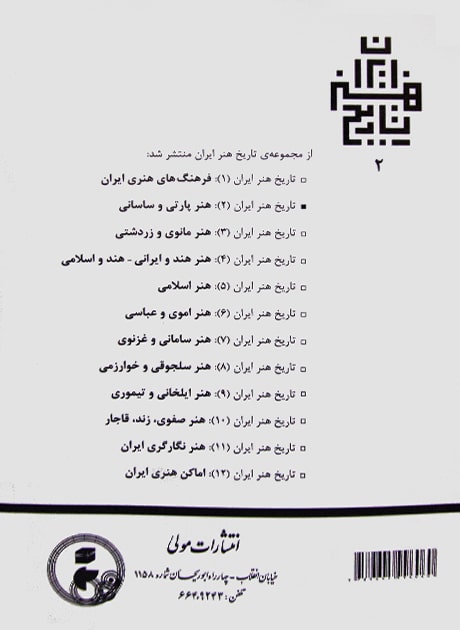 تاریخ هنر ایران
۲
از مجموعه‌ی تاریخ هنر ایران منتشر شد:
تاریخ هنر ایران (۱): فرهنگ‌های هنری ایران
تاریخ هنر ایران (۲): هنر پارتی و ساسانی
تاریخ هنر ایران (۳): هنر مانوی و زردشتی
تاریخ هنر ایران (۴): هنر هند و ایرانی - هند و اسلامی
تاریخ هنر ایران (۵): هنر اسلامی
تاریخ هنر ایران (۶): هنر اموی و عباسی
تاریخ هنر ایران (۷): هنر سامانی و غزنوی
تاریخ هنر ایران (۸): هنر سلجوقی و خوارزمی
تاریخ هنر ایران (۹): هنر ایلخانی و تیموری
تاریخ هنر ایران (۱۰): هنر صفوی، زند، قاجار
تاریخ هنر ایران (۱۱): هنر نگارگری ایران
تاریخ هنر ایران (۱۲): اماکن هنری ایران
انتشارات مولی
خیابان انقلاب - چهارراه ابوریحان شماره ۱۱۵۸
تلفن: ۶۶۴۰۹۲۴۳